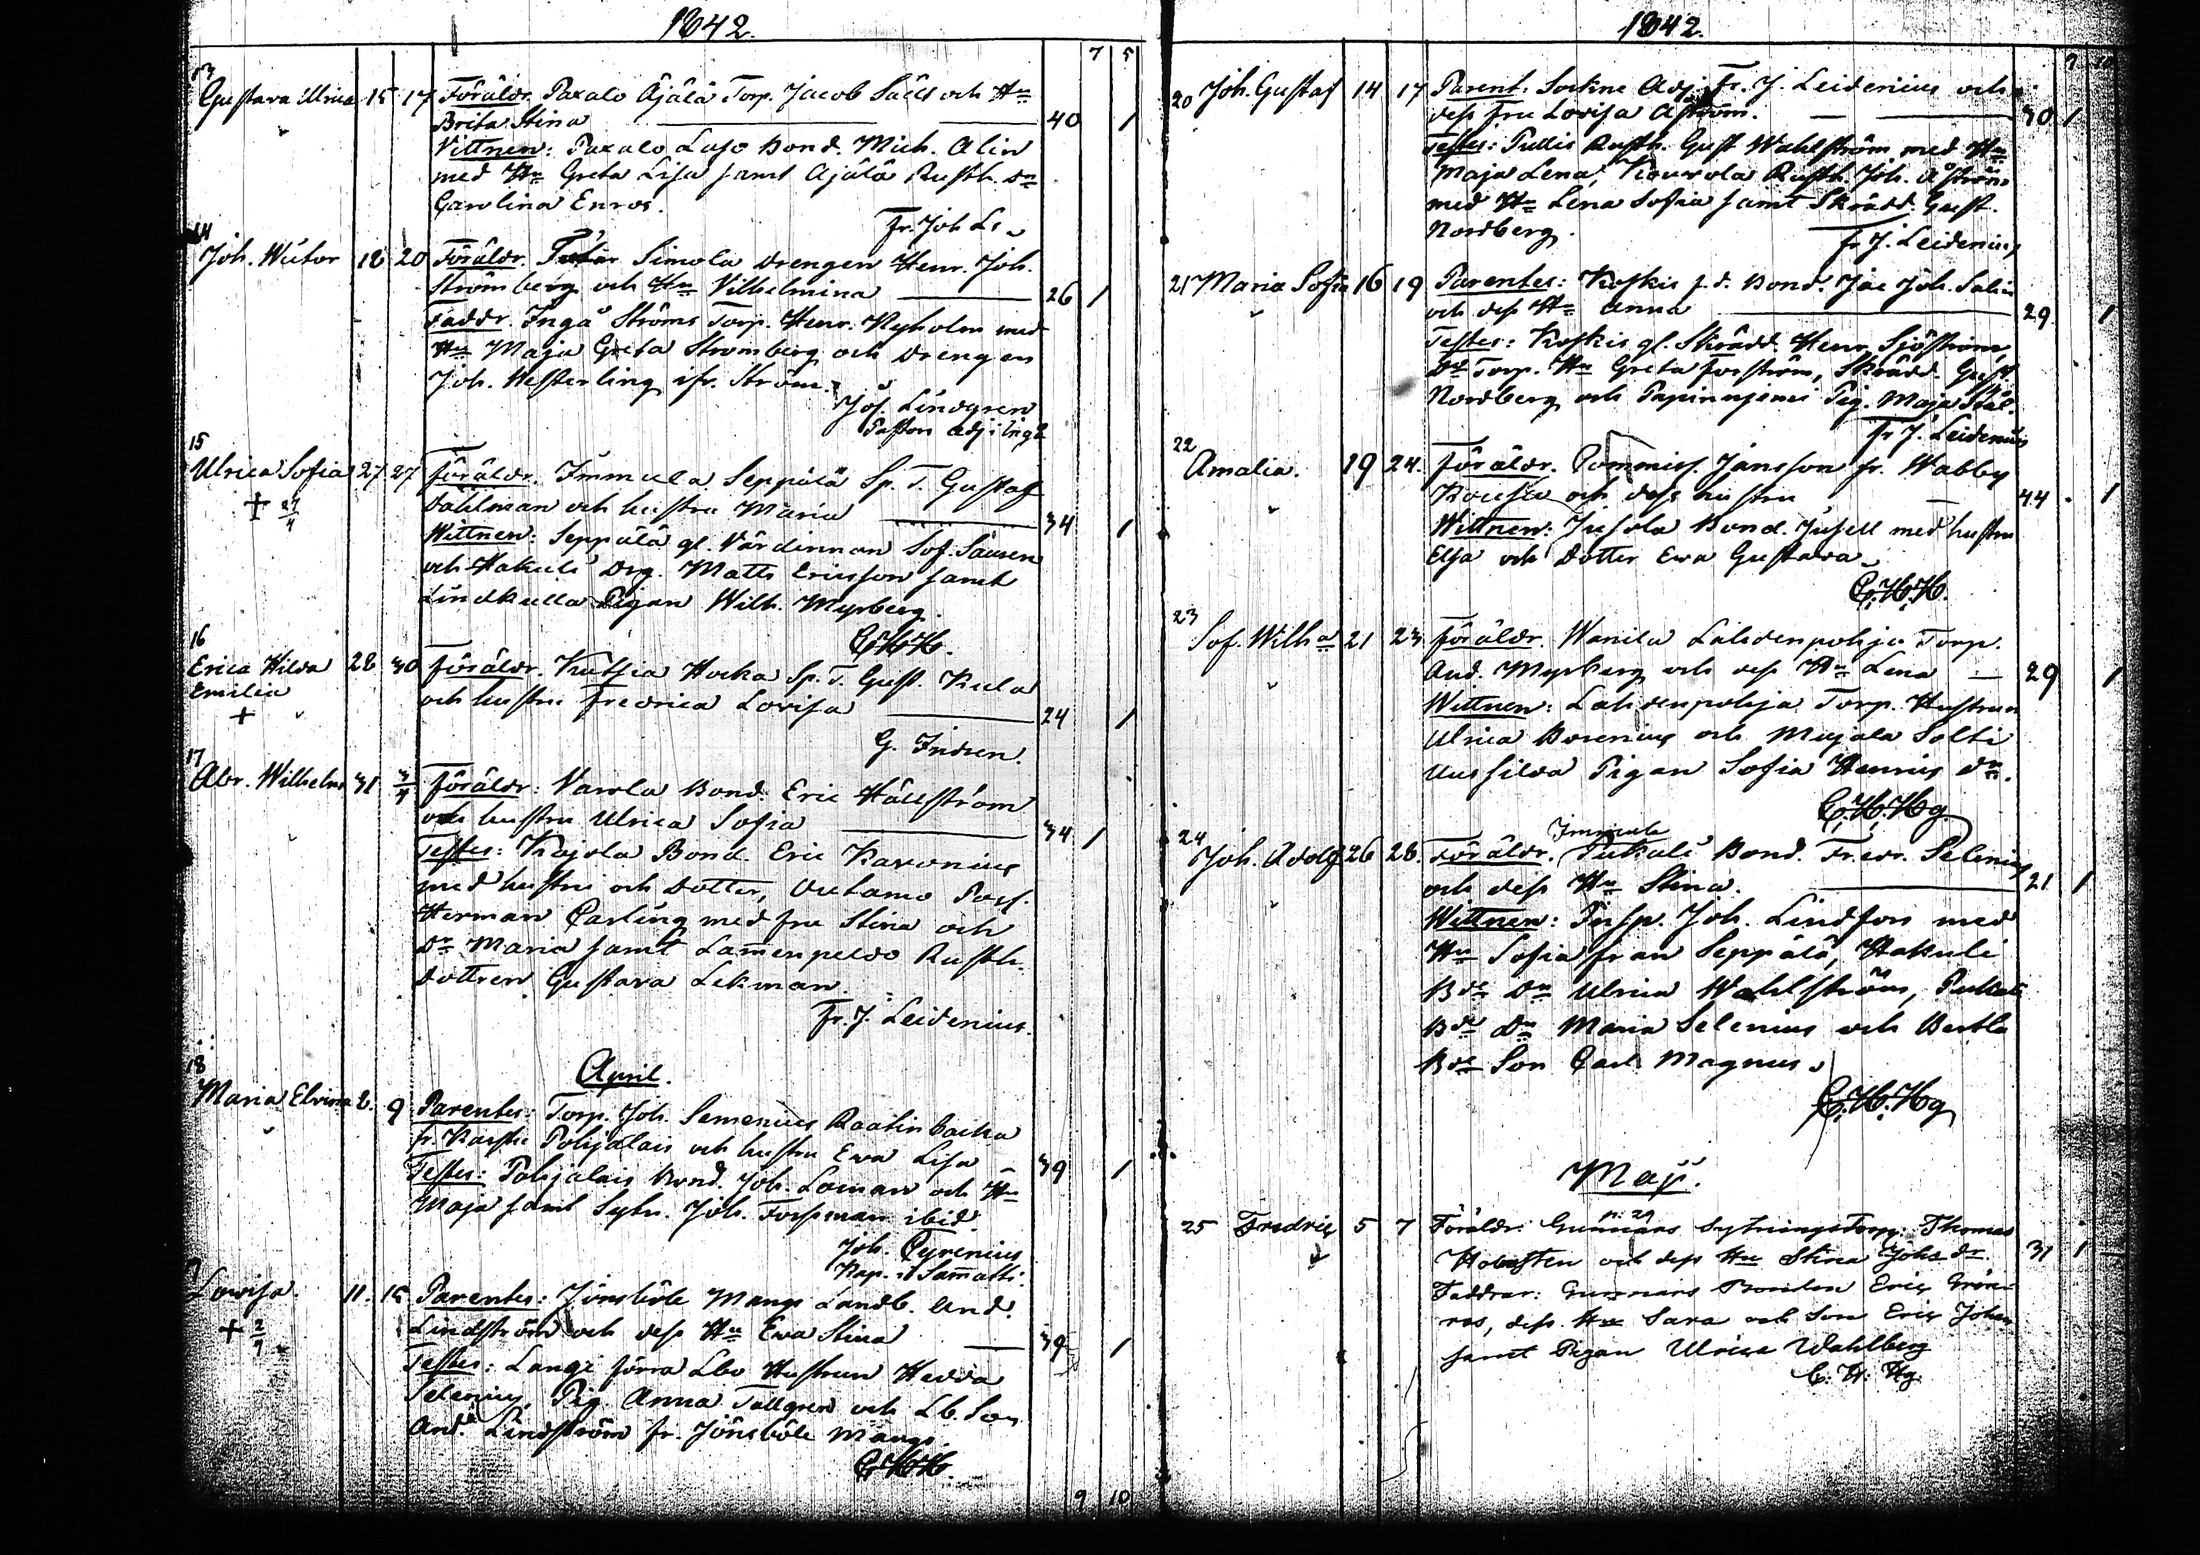 1842.
7 5
13
Gustava Ulrica 15 17 Föräldr. Paxalo Äjälä Torp. Jacob Säll och Hu
Brita Stina 40 1
Vittnen: Paxalo Bond. Mich. Alin
med Hu Greta Lisa samt Ajälä Rusth. Dr
Carolina Enros.
Fr. Joh Ls
14
Joh. Victor 18 20 Föräldr. Simola Drengen Henr. Joh.
Strömberg och Hu Vilhelmina 26 1
Faddr. Ingå Ströms Torp. Henr. Nyholm med
Hu Maja Greta Stromberg och Drengen
Joh. Westerling ifr. Ström.
Jos. Lindgren
Pastors adj i Ingå
15
Ulrica Sofia 27 27 föräldr. Immula Seppälä Sp. T. Gustaf
+ 29/4 Dahlman och hustru Maria 34 1
Wittnen: Seppälä gl. Värdinnan Sof.
och Hakuli Drg. Matts Ericsson samt
Lindkulla Pigan Wilh. Myrberg.
C.H.H.
16
Erica Hilda 28 30 föräldr. Kutsia Hocka Sp. T. Gust.
Emilia och hustru Fredrica Lovisa 24 1
+
G. Indren.
17
Abr. Wilhelm 31 3/4 föräldr: Varola Bond. Eric Hällström
och hustru Ulrica Sofia 34 1
Testes: Kajola Bond. Eric Karonius
med hustru och Dotter, Outamo Poss.
Herman Carling med fru Stina och
Dr Maria samt Lamenpeldo Rusth.
dottren Gustava Lekman.
Fr. J. Leidenius.
April.
18
Maria Elvira 2. 9 Parentes: Torp. Joh. Semenius Raatinbacka
fr. Karstu Pohjalais och hustru Ewa Lisa 39 1
Testes: Pohjalais Bond. Joh. Loman och Hu
Maja samt Sytn. Joh. Forsman ibid.
Joh. Cyrenius
Kap. i Sam̄atti.
Lovisa. 11. 15 Parentes: Jönsböle Mangs Landb. And.
+ 2/9 Lindström och dess Hu Ewa Stina 39 1
Testes: Langi förra Lbo Hustrun Hedda
Selenius, Pig. Anna Tallgren och Lb. Son
And. Lindström fr. Jönsböle Mangs.
C.H.H.
9 10
1842.
9 10
20 Joh. Gustaf 14 17 Parent: Sockne Adj. Fr. J. Leidenius och
dess fru Lovisa Åström. 30 1
Testes: Pullis Rusth. Gust Wahlström med Hu
Maja Lena, Kouvola Rusth. Joh. Åström
med Hu Lena Sofia samt Skrädd. Gust.
Nordberg.
Fr J. Leidenius
21 Maria Sofia 16 19 Parentes: Koskis f. d. Bond. Jac Joh. Salin
och dess Hu Anna 29 1
Testes: Koskis gl. Skrädd. Henr. Sjöström,
Do Torp. Hu Greta Forsström, Skrädd. Gust.
Nordberg och Papinniemi Pig. Maja Stål.
Fr J. Leidenius
22
Amalia. 19 24. föräldr. Commiss. Jansson fr. Wabby
och dess hustru 44 1
Wittnen: Jusola Bond. Jusell med hustru
Elsa och Dotter Ewa Gustava
C.H.H.
23
Sof. Wilha 21 23 föräldr. Wanila Lähdenpohja Torp.
And. Myrberg och dess Hu Lena 29 1
Wittnen: Lahdenpohja Torp. Hustrun
Ulrica Borenius och Mujala Solti
Uussilda Pigan Sofia Henrics dr.
C.H.Hg
24 Immula
Joh. Adolf 26 28. föräldr. Pukali Bond. Fredr. Selenius
och dess Hu Stina. 21 1
Wittnen: Insp. Joh. Lindfors med
Hu Sofia från Seppälä, Hakuli
Bds Dr Ulrica Wahlström,
Bds Dr Maria Selenius och Bertla
Bds Son Carl Magnus.
C.H.Hg
Maji.
25 Fredric 5 7 Föräldr: Gunnars Sytningstorp. Thomas
och dess Hu Stina Johs dr. 31 1
Faddrar: Gunnars Bonden Eric Grön-
ros, dess Hu Sara och Son Eric Johan
samt Pigan Ulrica Wahlberg
C. H. Hg.